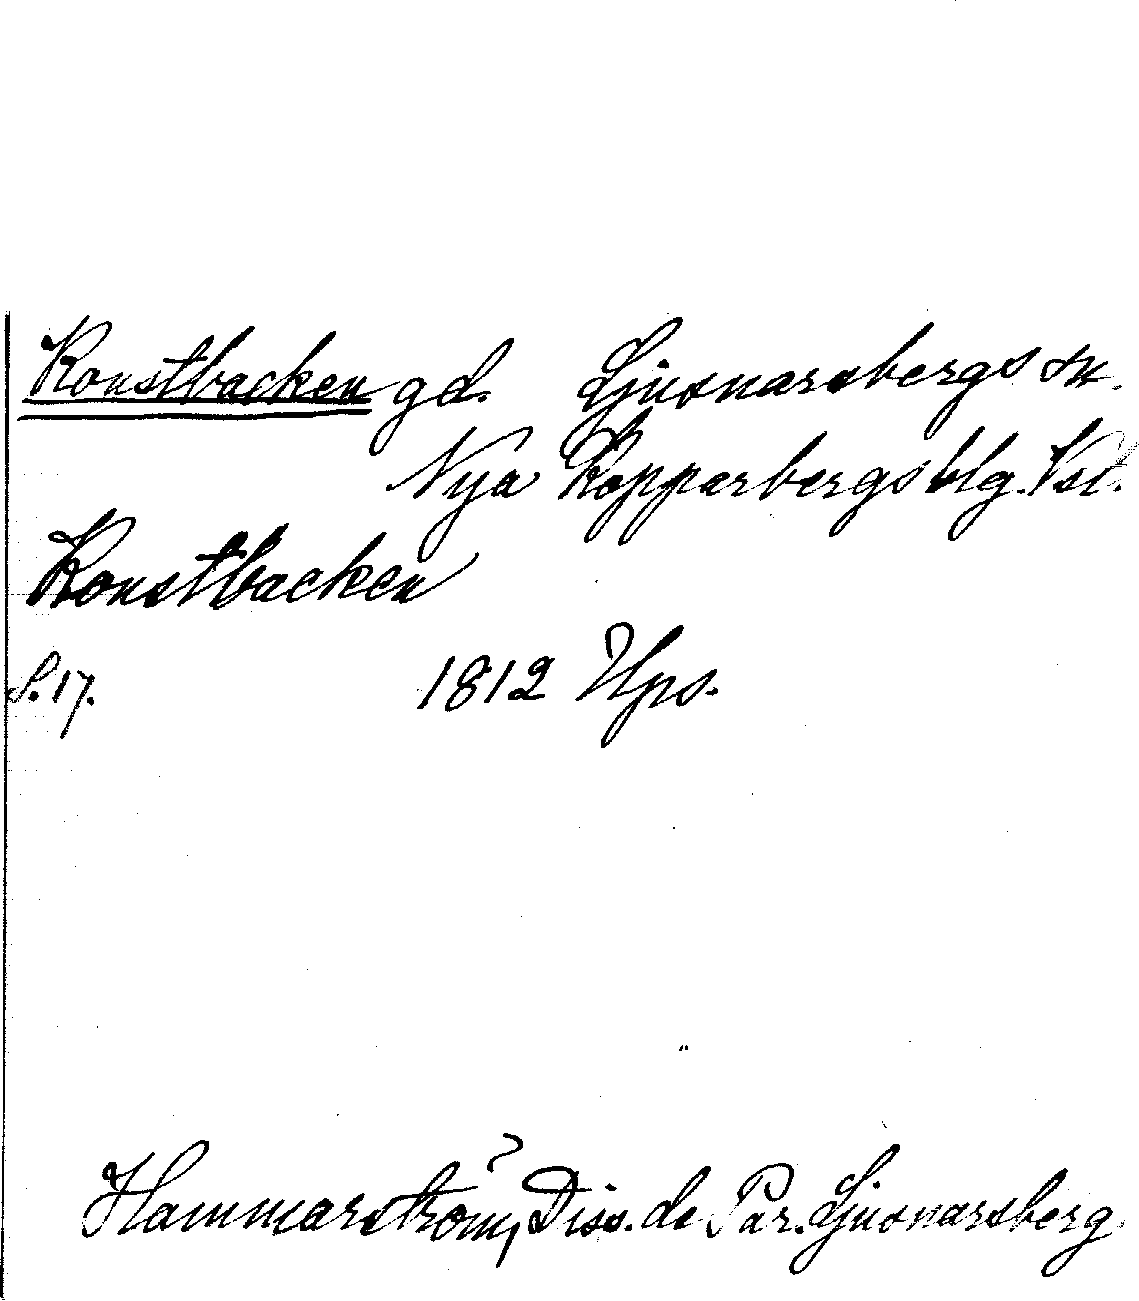 Konstbacken gd. Ljusnarsbergs sn.
Nya Kopparbergs blg. Vsl.
Konstbacken
S. 17. 1812 Ups.
Hammarström, Diss. de Par. Ljusnarsberg